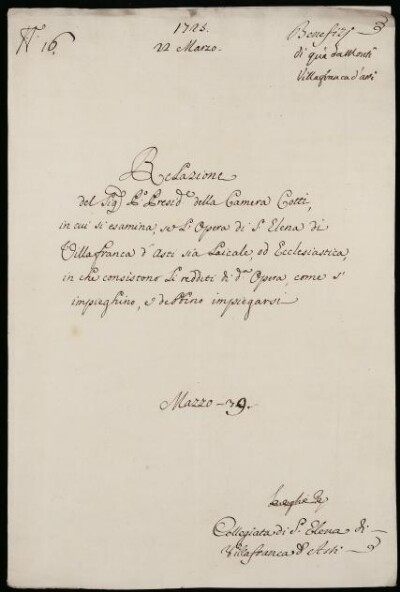 N. 16.
1723.
22 Marzo.
Benefizj
di quà da Monti
Villafranca d'asti
Relazione
del Sig.r P.o Presid.e della Camera Cotti,
in cui si esamina, se l'Opera di S. Elena di
Villafranca d'Asti sia Laicale, od Ecclesiastica,
in che consistono li redditi di d.a Opera, come s'
impieghino, e debbino impiegarsi
Mazzo - 39.
Collegiata di S. Elena di
Villafranca d'Asti